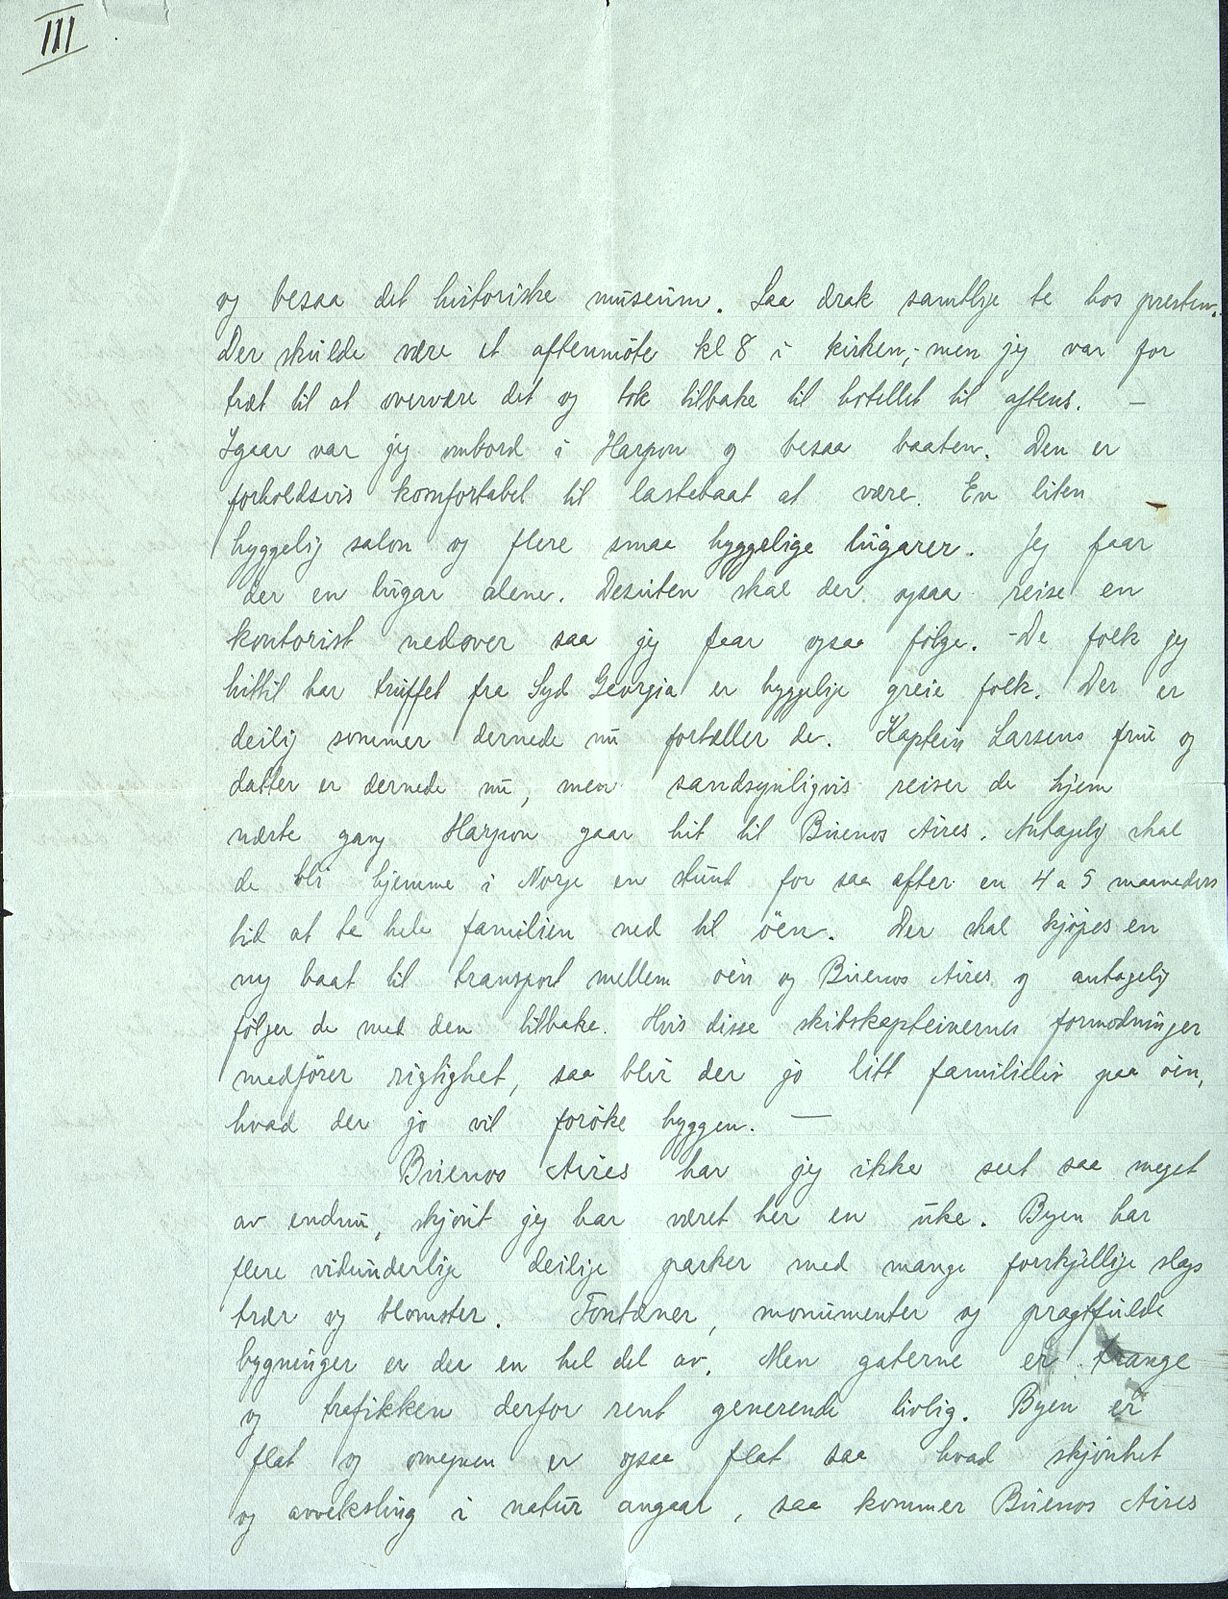 III
og besaa det historiske museum. Saa drak samtlige te hos presten.
Der skulde være et aftenmöte kl 8 i kirken,- men jeg var for
træt til at overvære det og tok tilbake til hotellet til aftens. —
Igaar var jeg ombord i Harpon og besaa baaten. Den er
forholdsvis komfortabel til lastebaat at være. En liten
hyggelig salon og flere smaa hyggelige lugarer. Jeg faar
der en lugar alene. Desuten skal der ogsaa reise en
kontorist nedover saa jeg faar ogsaa fölge. - De folk jeg
hittil har truffet fra Syd Georgia er hyggelige greie folk. Der er
deilig sommer dernede nu fortæller de. Kaptein Larsens frue og
datter er dernede nu, men sandsynligvis reiser de hjem
næste gang Harpon gaar hit til Buenos Aires. Antagelig skal
de bli hjemme i Norge en stund for saa after en 4 a 5 maaneders
tid at ta hele familien ned til öen. Der skal kjöpes en
ny baat til transport mellem öen og Buenos Aires og antagelig
fölger de med den tilbake. Hvis disse skibskapteinernes formodninger
medförer rigtighet, saa blir der jo litt familieliv paa öen,
hvad der jo vil foröke hyggen. —
Buenos Aires har jeg ikke seet saa meget
av endnu, skjönt jeg har været her en uke. Byen har
flere vidunderlige deilige parker med mange forskjellige slags
trær og blomster. Fontæner, monumenter og pragtfulde
bygninger er der en hel del av. Men gaterne er trange
og trafikken derfor rent generende livlig. Byen er
flat og omegnen er ogsaa flat saa hvad skjönhet
og avveksling i natur angaar, saa kommer Buenos Aires